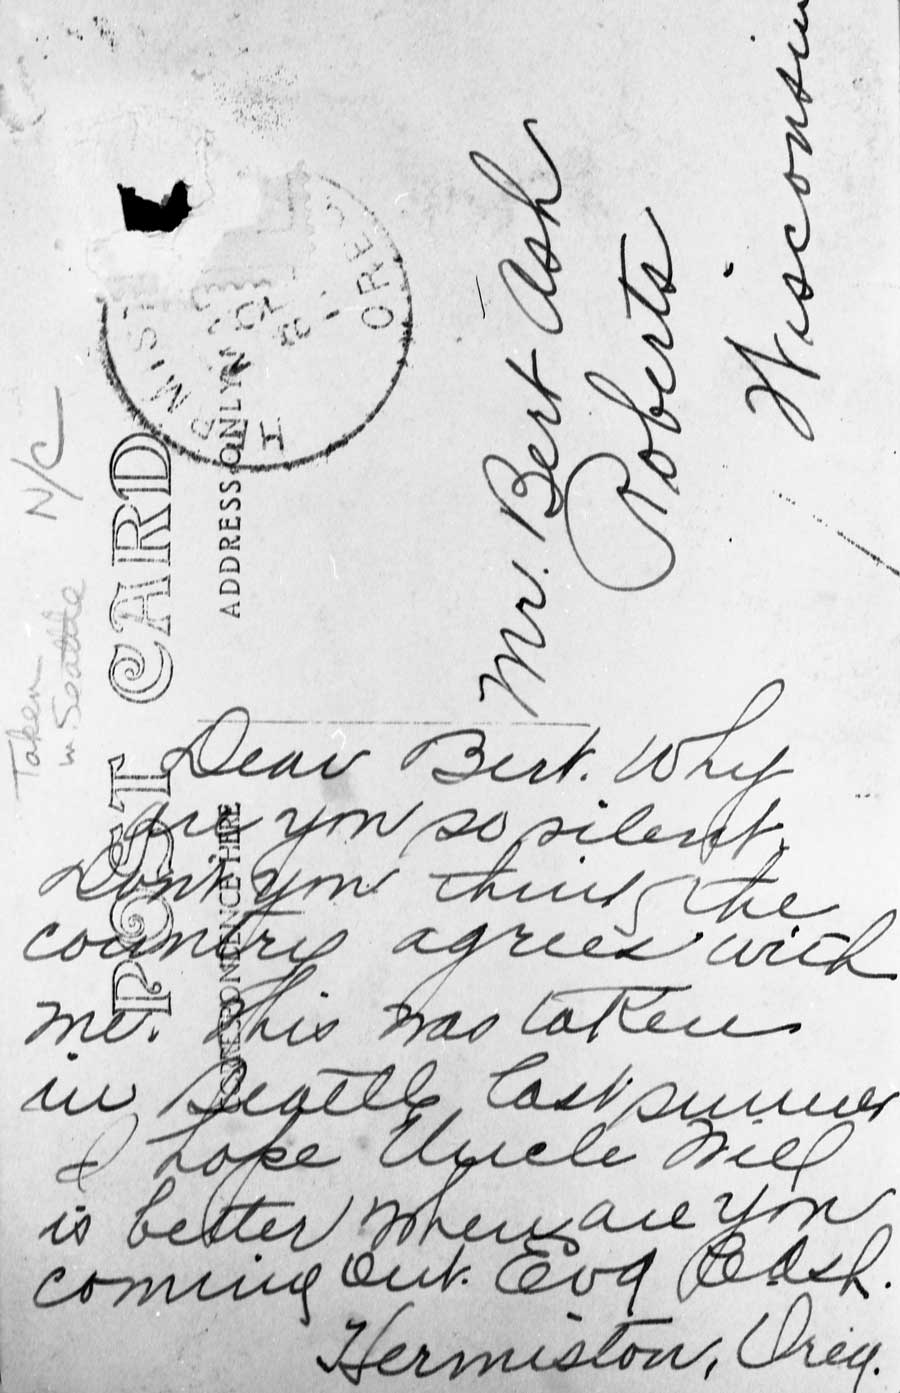 POST CARD
CORRESPONDENCE HERE
ADDRESS ONLY
Taken
in Seattle
N/C
MIST
ORE
Mr. Bert Ash
Roberts
Wisconsin
Dear Bert. Why
are you so silent.
Dont you think the
country agrees with
me. This was taken
in Seattle last summer
I hope Uncle Will
is better when are you
coming out. Eva Ash.
Hermiston, Oreg.